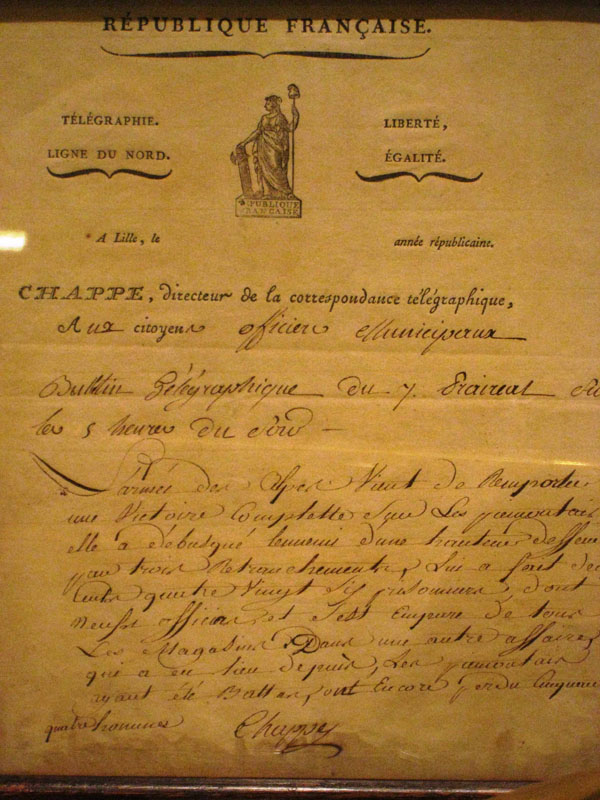 RÉPUBLIQUE FRANÇAISE.
TÉLÉGRAPHIE.
LIGNE DU NORD.
LIBERTÉ,
ÉGALITÉ.
PUBLIQUE
A Lille, le année républicaine.
CHAPPE, directeur de la correspondance télégraphique,
Aux citoyens officiers Municipaux
Bulletin Télégraphique du 7. Prairéal
les 5 heures du Soir
L'armée des Alpes Vient de Remporter
une Victoire Complette Sur Les piemontais
elle à débusqué lennemi dune hauteur
par trois Retranchements, Lui a fait
Cents quatre Vingt Six prisonniers, dont
neuff officiers et Sest Emparé de tous
Les Magasins. Dans une autre affaire
qui a eu lieu depuis, Les piemontais
ayant été Battus, ont Encore perdu Cinquante
quatre hommes Chappe